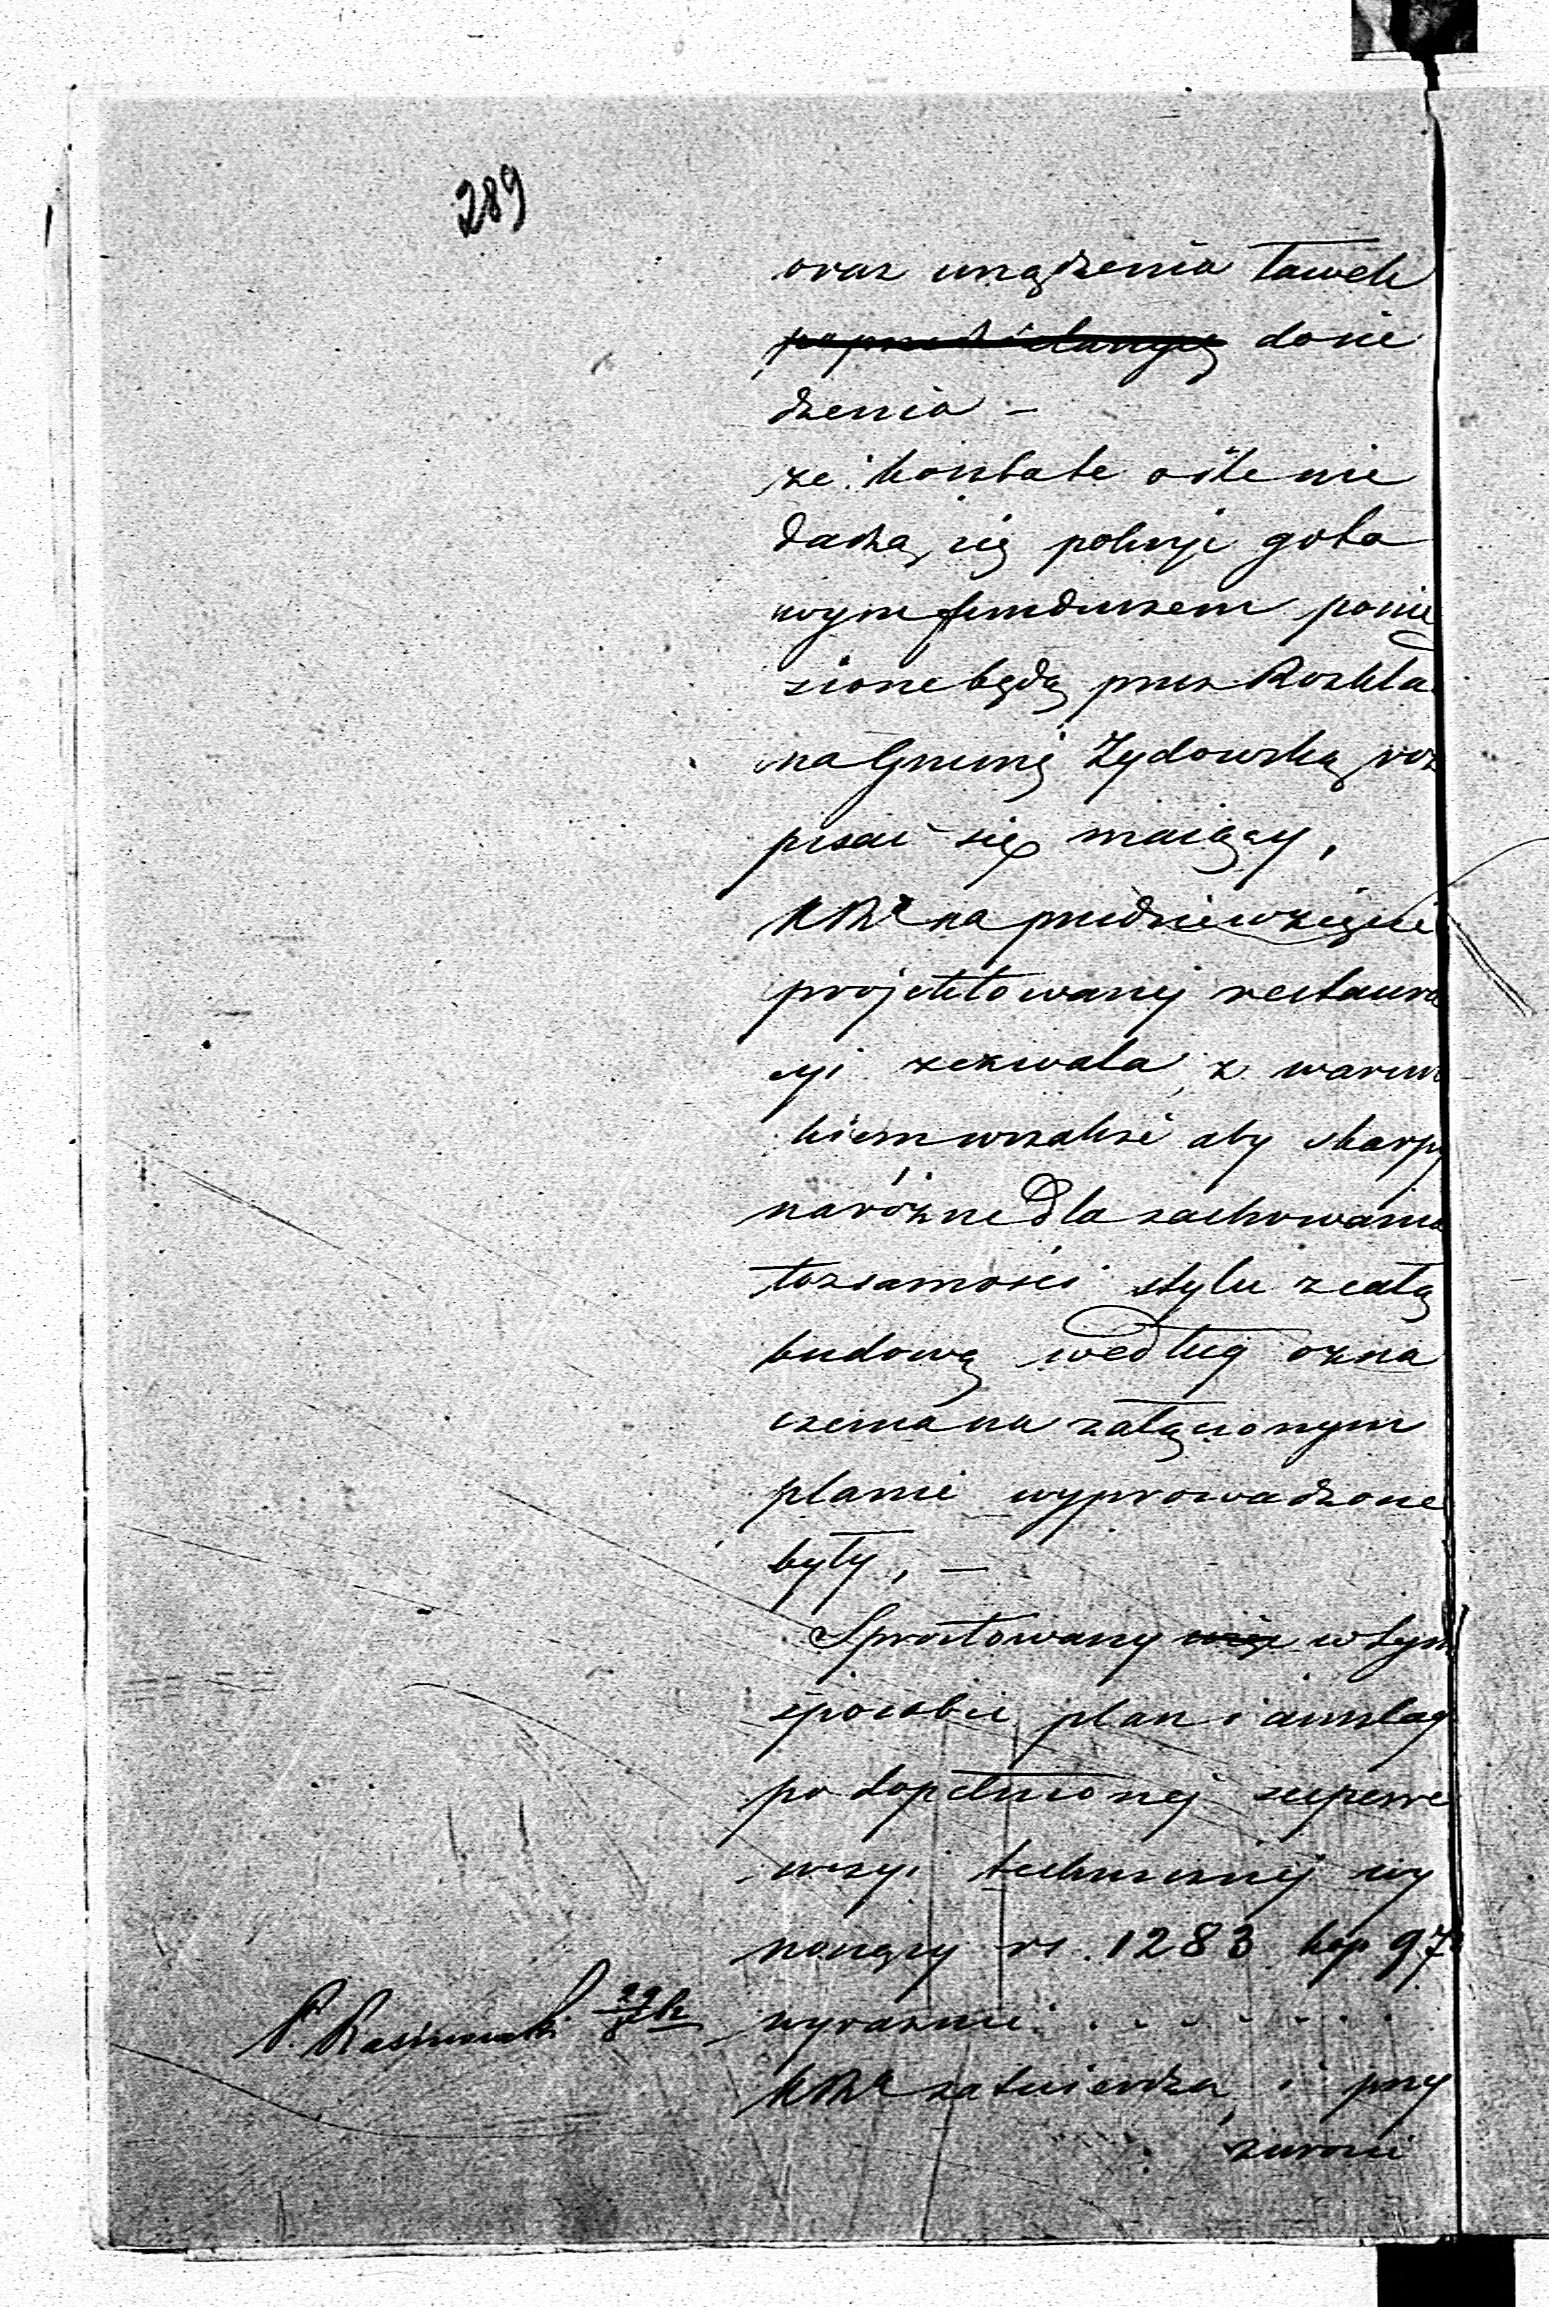 289
oraz urządzenia ławek
donie
dzenia –
że koszta te o ile nie
dadzą się pokryć goto
wym funduszem ponie
sione będą przez Rozkła
na Gminę Żydowską roz
pisać się maiący,
KRz na przedsięwzięcie
projektowanej restaura
cyi zezwala, z warun
kiem wszakże aby skarpy
narożne dla zachowania
tożsamości stylu z całą
budową według ozna
czenia na załączonym
planie wyprowadzone
były, —
Sprostowany w tym
sposobie plan i anszlag
po dopełnionej superre
wizyi technicznej wy
noszący rs. 1283 kop 97
wyraźnie . . . . . . . .
KRz zatwierdza, i przy
zwrocie